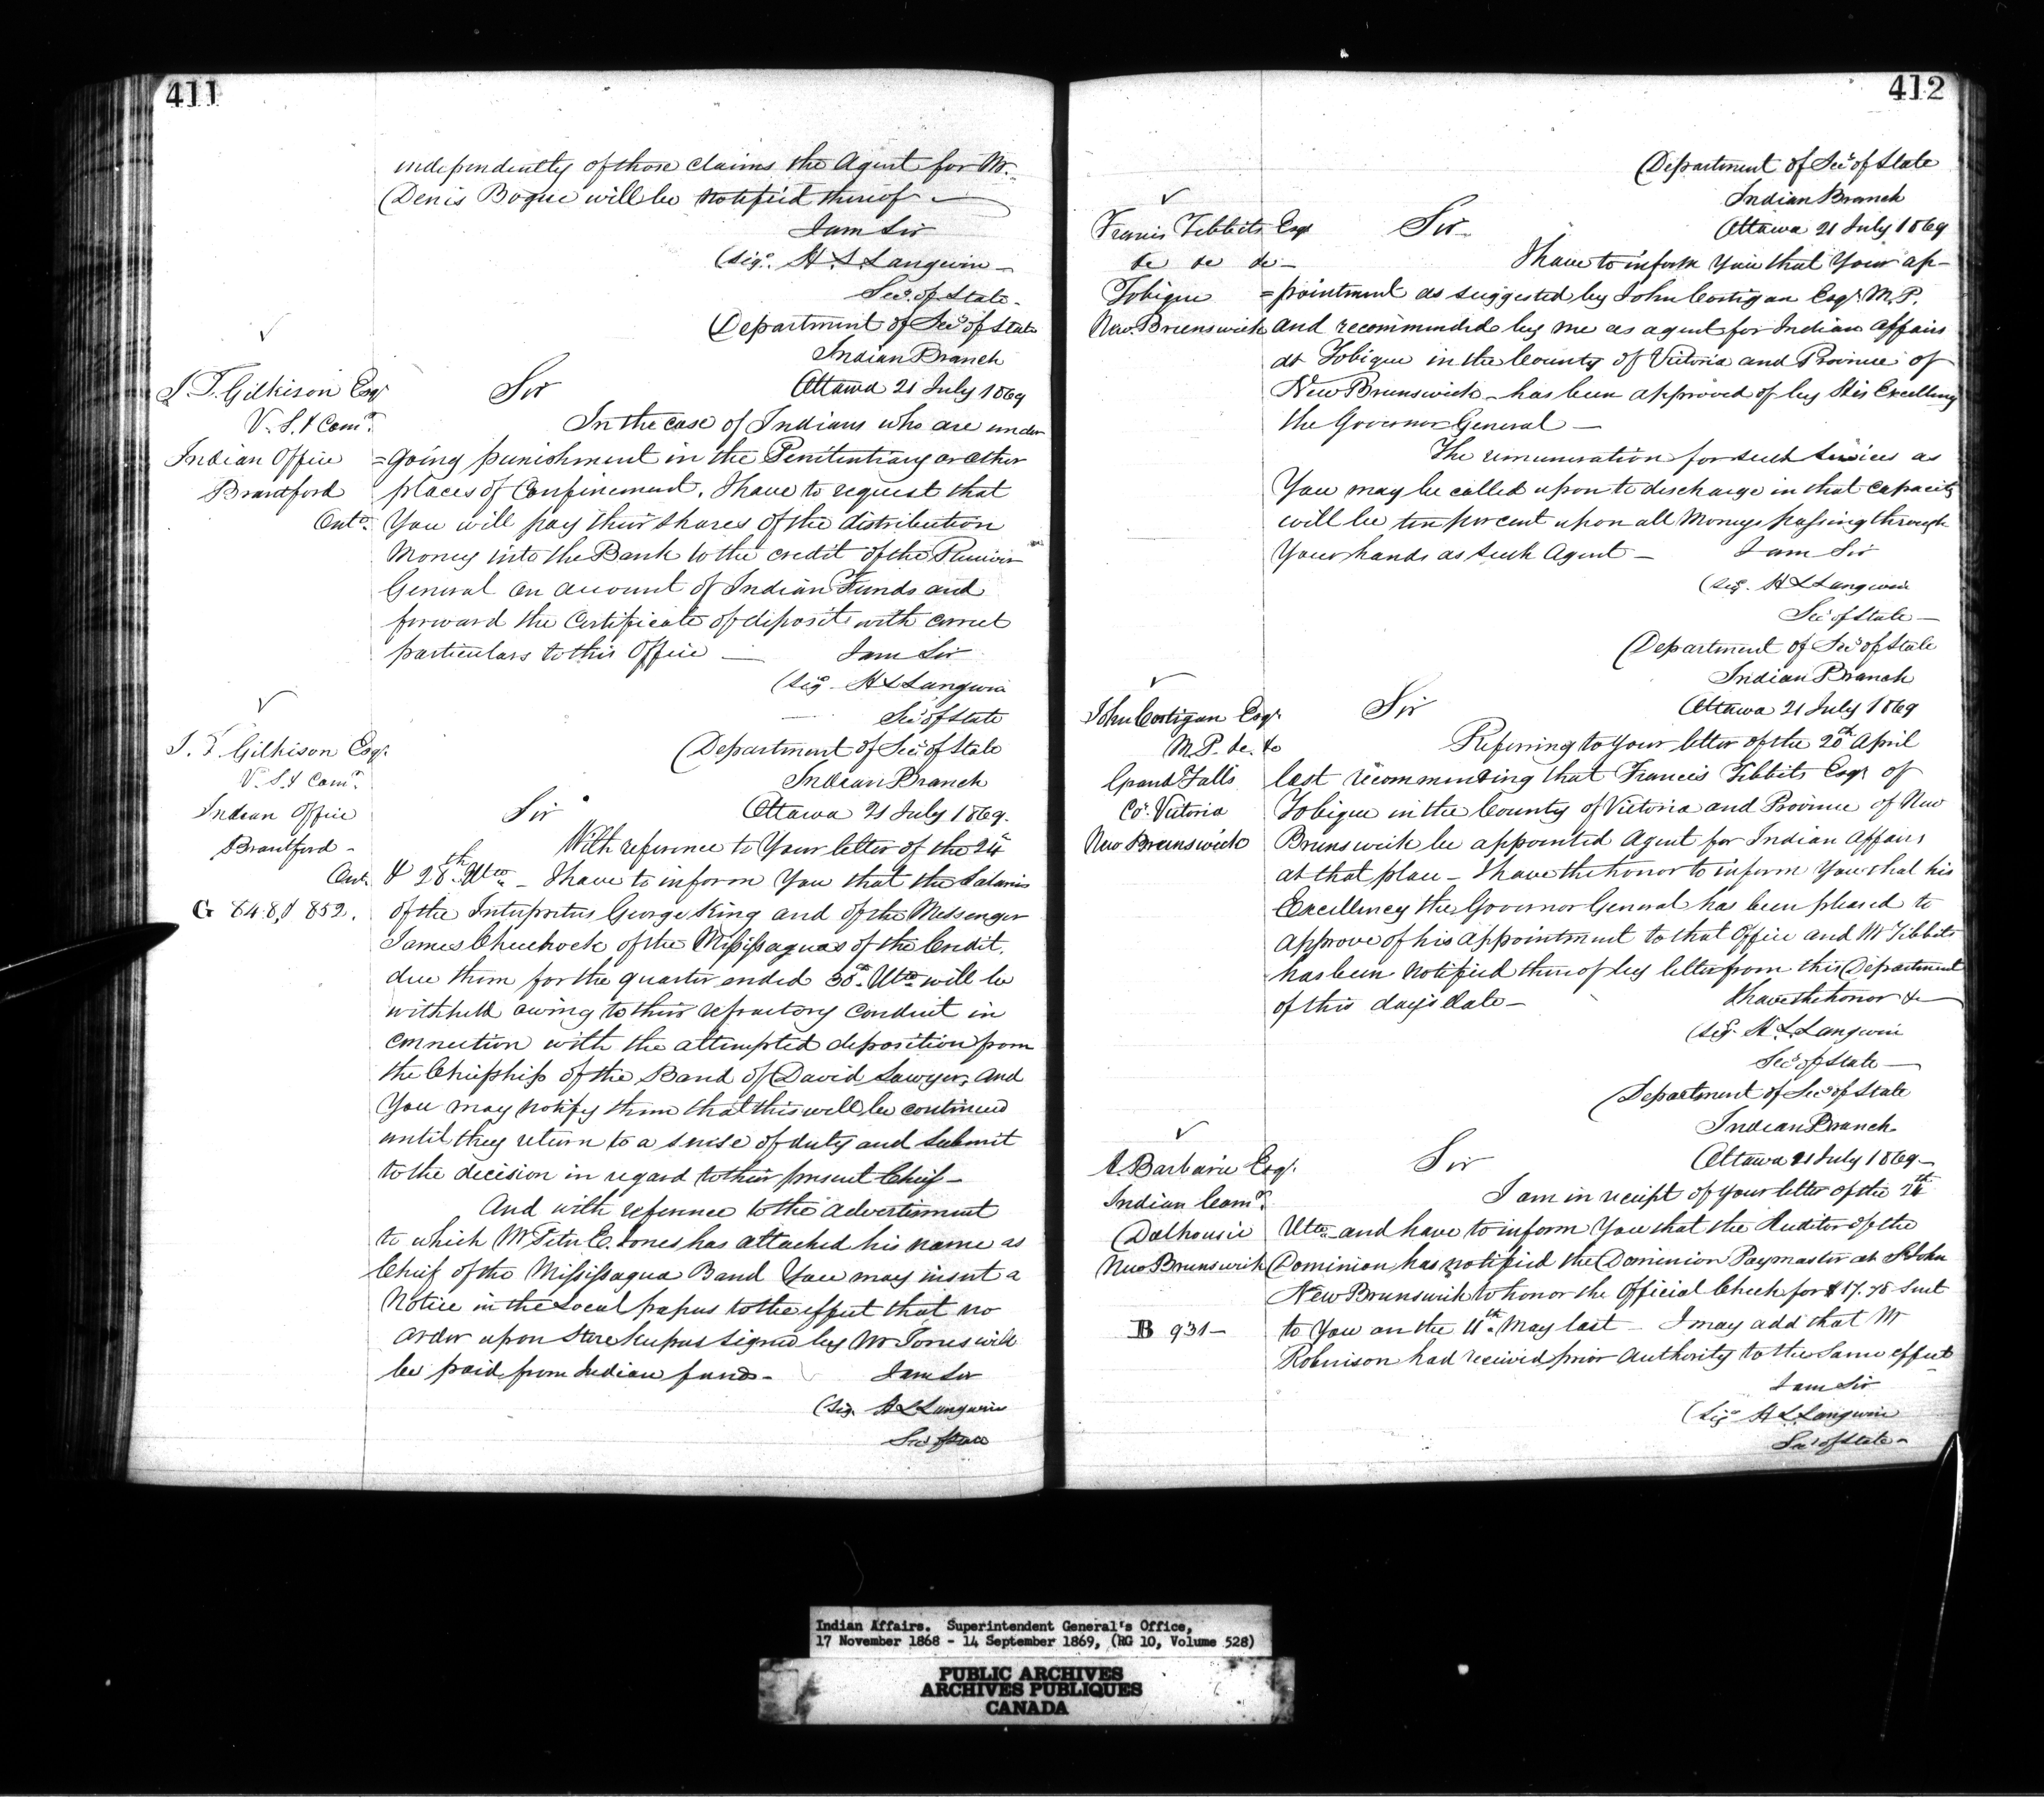 411
independently of those claims the Agent for Mr.
Denis Bogue will be notified thereof —
I am Sir
(Sigd. H. L. Langevin —
Secy. of State.
Department of Secy of State
Indian Branch
J. T. Gilkison Esqr
V. S. & Comr.
Indian Office
Brantford
Onto.
Sir
Ottawa 21 July 1869
In the case of Indians who are under
=going punishment in the Penitentiary or other
places of Confinement. I have to request that
You will pay their shares of the distribution
Money into the Bank to the credit of the Receiver
General on account of Indian Funds and
forward the Certificate of deposit with correct
particulars to this Office —
I am Sir
(Sigd H L Langevin
Secy of State
J. T. Gilkison Esqr.
V. S. & Comr.
Indian Office
Brantford —
Ont.
G 848, & 852.
Department of Secy of State
Indian Branch
Sir
Ottawa 21 July 1869.
With reference to Your letter of the 24th
& 28th Ulto. — I have to inform You that the Salaries
of the Interpreter George King and of the Messenger
James Chechock of the Mississaguas of the Credit.
due them for the quarter ended 30th Ulto. will be
withheld owing to their refractory conduct in
connection with the attempted deposition from
the Chiefship of the Band of David Sawyer, and
You may notify them that this will be continued
until they return to a sense of duty and submit
to the decision in regard to their present Chief —
And with reference to the advertisment
to which Mr Peter E. Jones has attached his name as
Chief of the Mississagua Band You may insert a
Notice in the Local papers to the effect that no
order upon Store keepers signed by Mr Jones will
be paid from Indian funds —
I am Sir
(Sig. H L Langevin
Secy of State
412
Department of Secy of State
Indian Branch
Francis Tibbits Esqr
&c &c &c —
Tobique
New Brunswick
Sir
Ottawa 21 July 1869
I have to inform You that Your ap-
=pointment as suggested by John Costigan Esqr. M.P.
and recommended by me as agent for Indian affairs
at Tobique in the County of Victoria and Province of
New Brunswick — has been approved of by His Excellency
the Governor General —
The remuneration for such Services as
You may be called upon to discharge in that Capacity
will be ten per cent upon all Moneys passing through
Your hands as such Agent —
I am Sir
(Sigd. H L Langevin
Secy of State —
Department of Secy of State
Indian Branch
John Costigan Esqr.
M.P. &c. &c
Grand Falls
Co. Victoria
New Brunswick
Sir
Ottawa 21 July 1869
Referring to Your letter of the 20th April
last recommending that Francis Tibbits Esqr of
Tobique in the County of Victoria and Province of New
Brunswick be appointed Agent for Indian Affairs
at that place — I have the honor to inform You that his
Excellency the Governor General has been pleased to
approve of his appointment to that Office and Mr Tibbits
has been notified thereof by letter from this Department
of this day's date —
I have the honor &c —
(Sigd. H. L. Langevin
Secy of State —
Department of Secy of State
Indian Branch
A. Barbarie Esqr.
Indian Comr.
Dalhousie
New Brunswick
B 931 —
Sir
Ottawa 21 July 1869 —
I am in receipt of your letter of the 24th
Ulto. and have to inform You that the Auditor of the
Dominion has notified the Dominion Paymaster at St John
New Brunswick to honor the Official Check for $17.78 sent
to You on the 11th May last — I may add that Mr
Robinson had received prior Authority to the Same effect
I am Sir
(Sigd H L Langevin
Secy of State —
Indian Affairs. Superintendent General's Office,
17 November 1868 - 14 September 1869, (RG 10, Volume 528)
PUBLIC ARCHIVES
ARCHIVES PUBLIQUES
CANADA